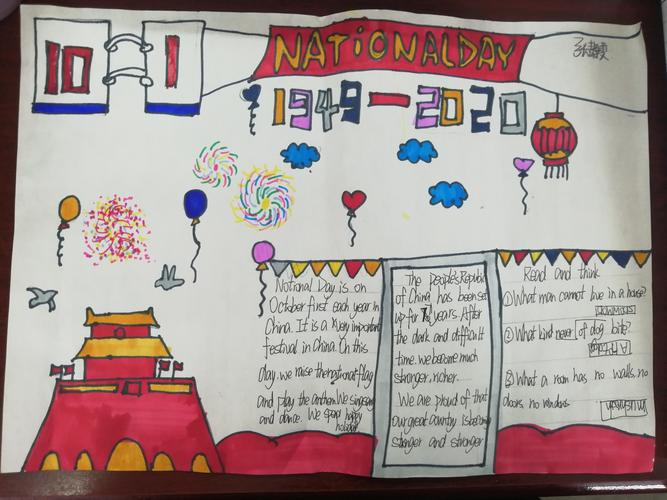 10 1
NATIONAL DAY
1949—2020
National Day is on
October first each year in
China. It is a very important
festival in China. On this
day. we raise the national flag
and play the anthem. We sing song
and dance. We spend happy
holiday
The People's Republic
of China has been set
up for 71 years. After
the dark and difficult
time. we became much
stronger, richer.
We are proud of that
our great country is becoming
stronger and stronger
Read and think
①What man cannot live in a house?
②What kind never of dog bite?
③What a room has no walls. no
doors no windows